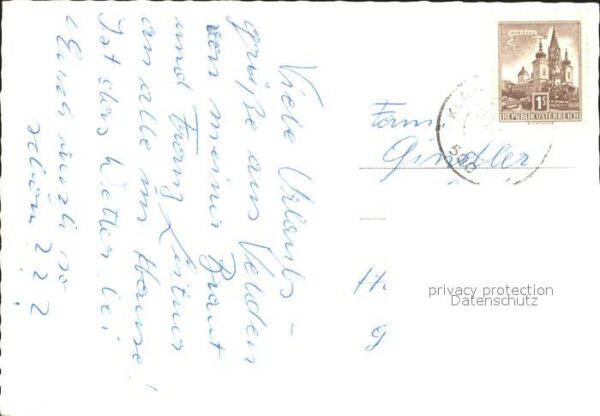 Viele Urlaubs-
grüße aus Velden
von meiner Braut
und Franz
an alle im Hause!
Ist das Wetter bei
Euch auch so
schön ? ? ?
Fam.
Gindler
H.
g
MARIAZELL
1S
REPUBLIK ÖSTERREICH
privacy protection
Datenschutz